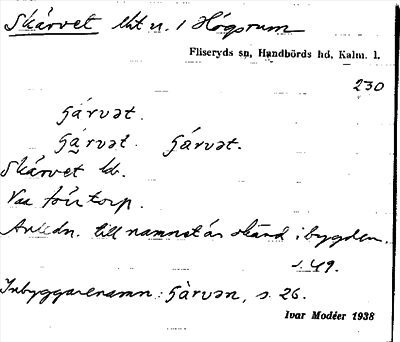 Skärvet lht u. 1 Högsrum
Fliseryds sn, Handbörds hd, Kalm. l.
230
ʃárvət.
ʃárvət. ʃárvət.
Skärvet ld.
Var förr torp.
Anledn. till namnet är skärd i bygden.
s. 49.
Inbyggarenamn: ʃàrvən, s. 26.
Ivar Modéer 1938